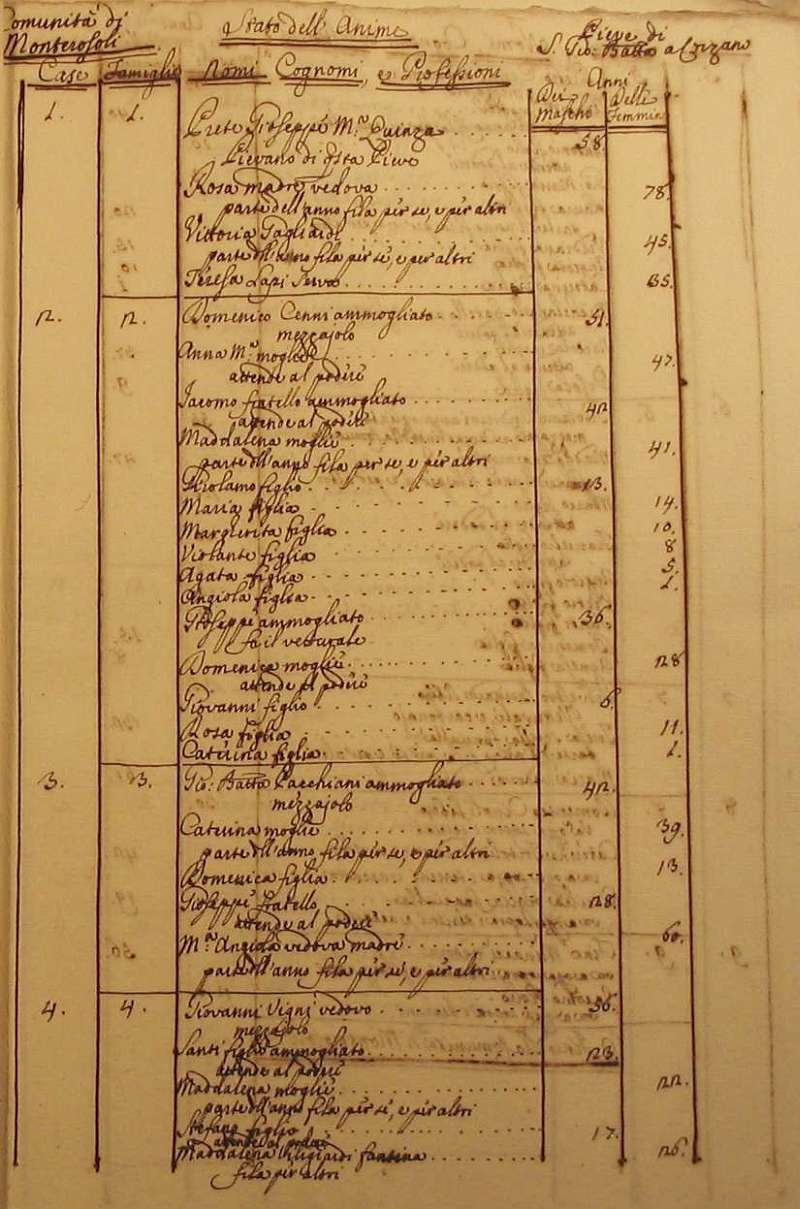 Comunità di
Monterosoli
Stato dell' Anime
Pieve di
S. Gio: Batta a Corzano
Case Famiglie Nomi Cognomi, e Professioni
Anni
Dei Maschi Delle Femmine
1. 1. Prete Giuseppe M.ª Duinza 58.
Pievano di qsta Pieve
Rosa madre vedova 78.
parte dell'anno fila per se, e per altri
Vittoria Gagliardi 45.
parte dell'anno fila per se, e per altri
Teresa Lapi Serva 65.
2. 2. Domenico Cenni ammogliato 51.
mezzajolo
Anna M.ª moglie 47.
attende al podere
Jacomo fratello ammogliato 42
attende al podere
Maddalena moglie 41.
parte dell'anno fila per se, e per altri
Girolamo figlio 13.
Maria figlia 14.
Margherita figlia 10.
Violante figlia 8
Agata figlia 5.
Angiola figlia 1.
Giuseppe ammogliato 36.
fa il vetturale
Domenica moglie 28
attende al podere
Giovanni figlio 6.
Rosa figlia 11.
Caterina figlia 1.
3. 3. Gio: Batta Pacchiani ammogliato 42.
mezzajolo
Caterina moglie 39.
parte dell'anno fila per se, e per altri
Domenica figlia 13.
Giuseppe fratello 28.
attende al podere
M.ª Angiola vedova madre 60.
parte dell'anno fila per se, e per altri
4. 4. Giovanni Vigni vedovo 56.
mezzajolo
Santi figlio ammogliato 23.
attende al podere
Maddalena moglie 22.
parte dell'anno fila per se, e per altri
Stefano figlio 17.
attende al podere
Maddalena fantina 26.
fila per altri